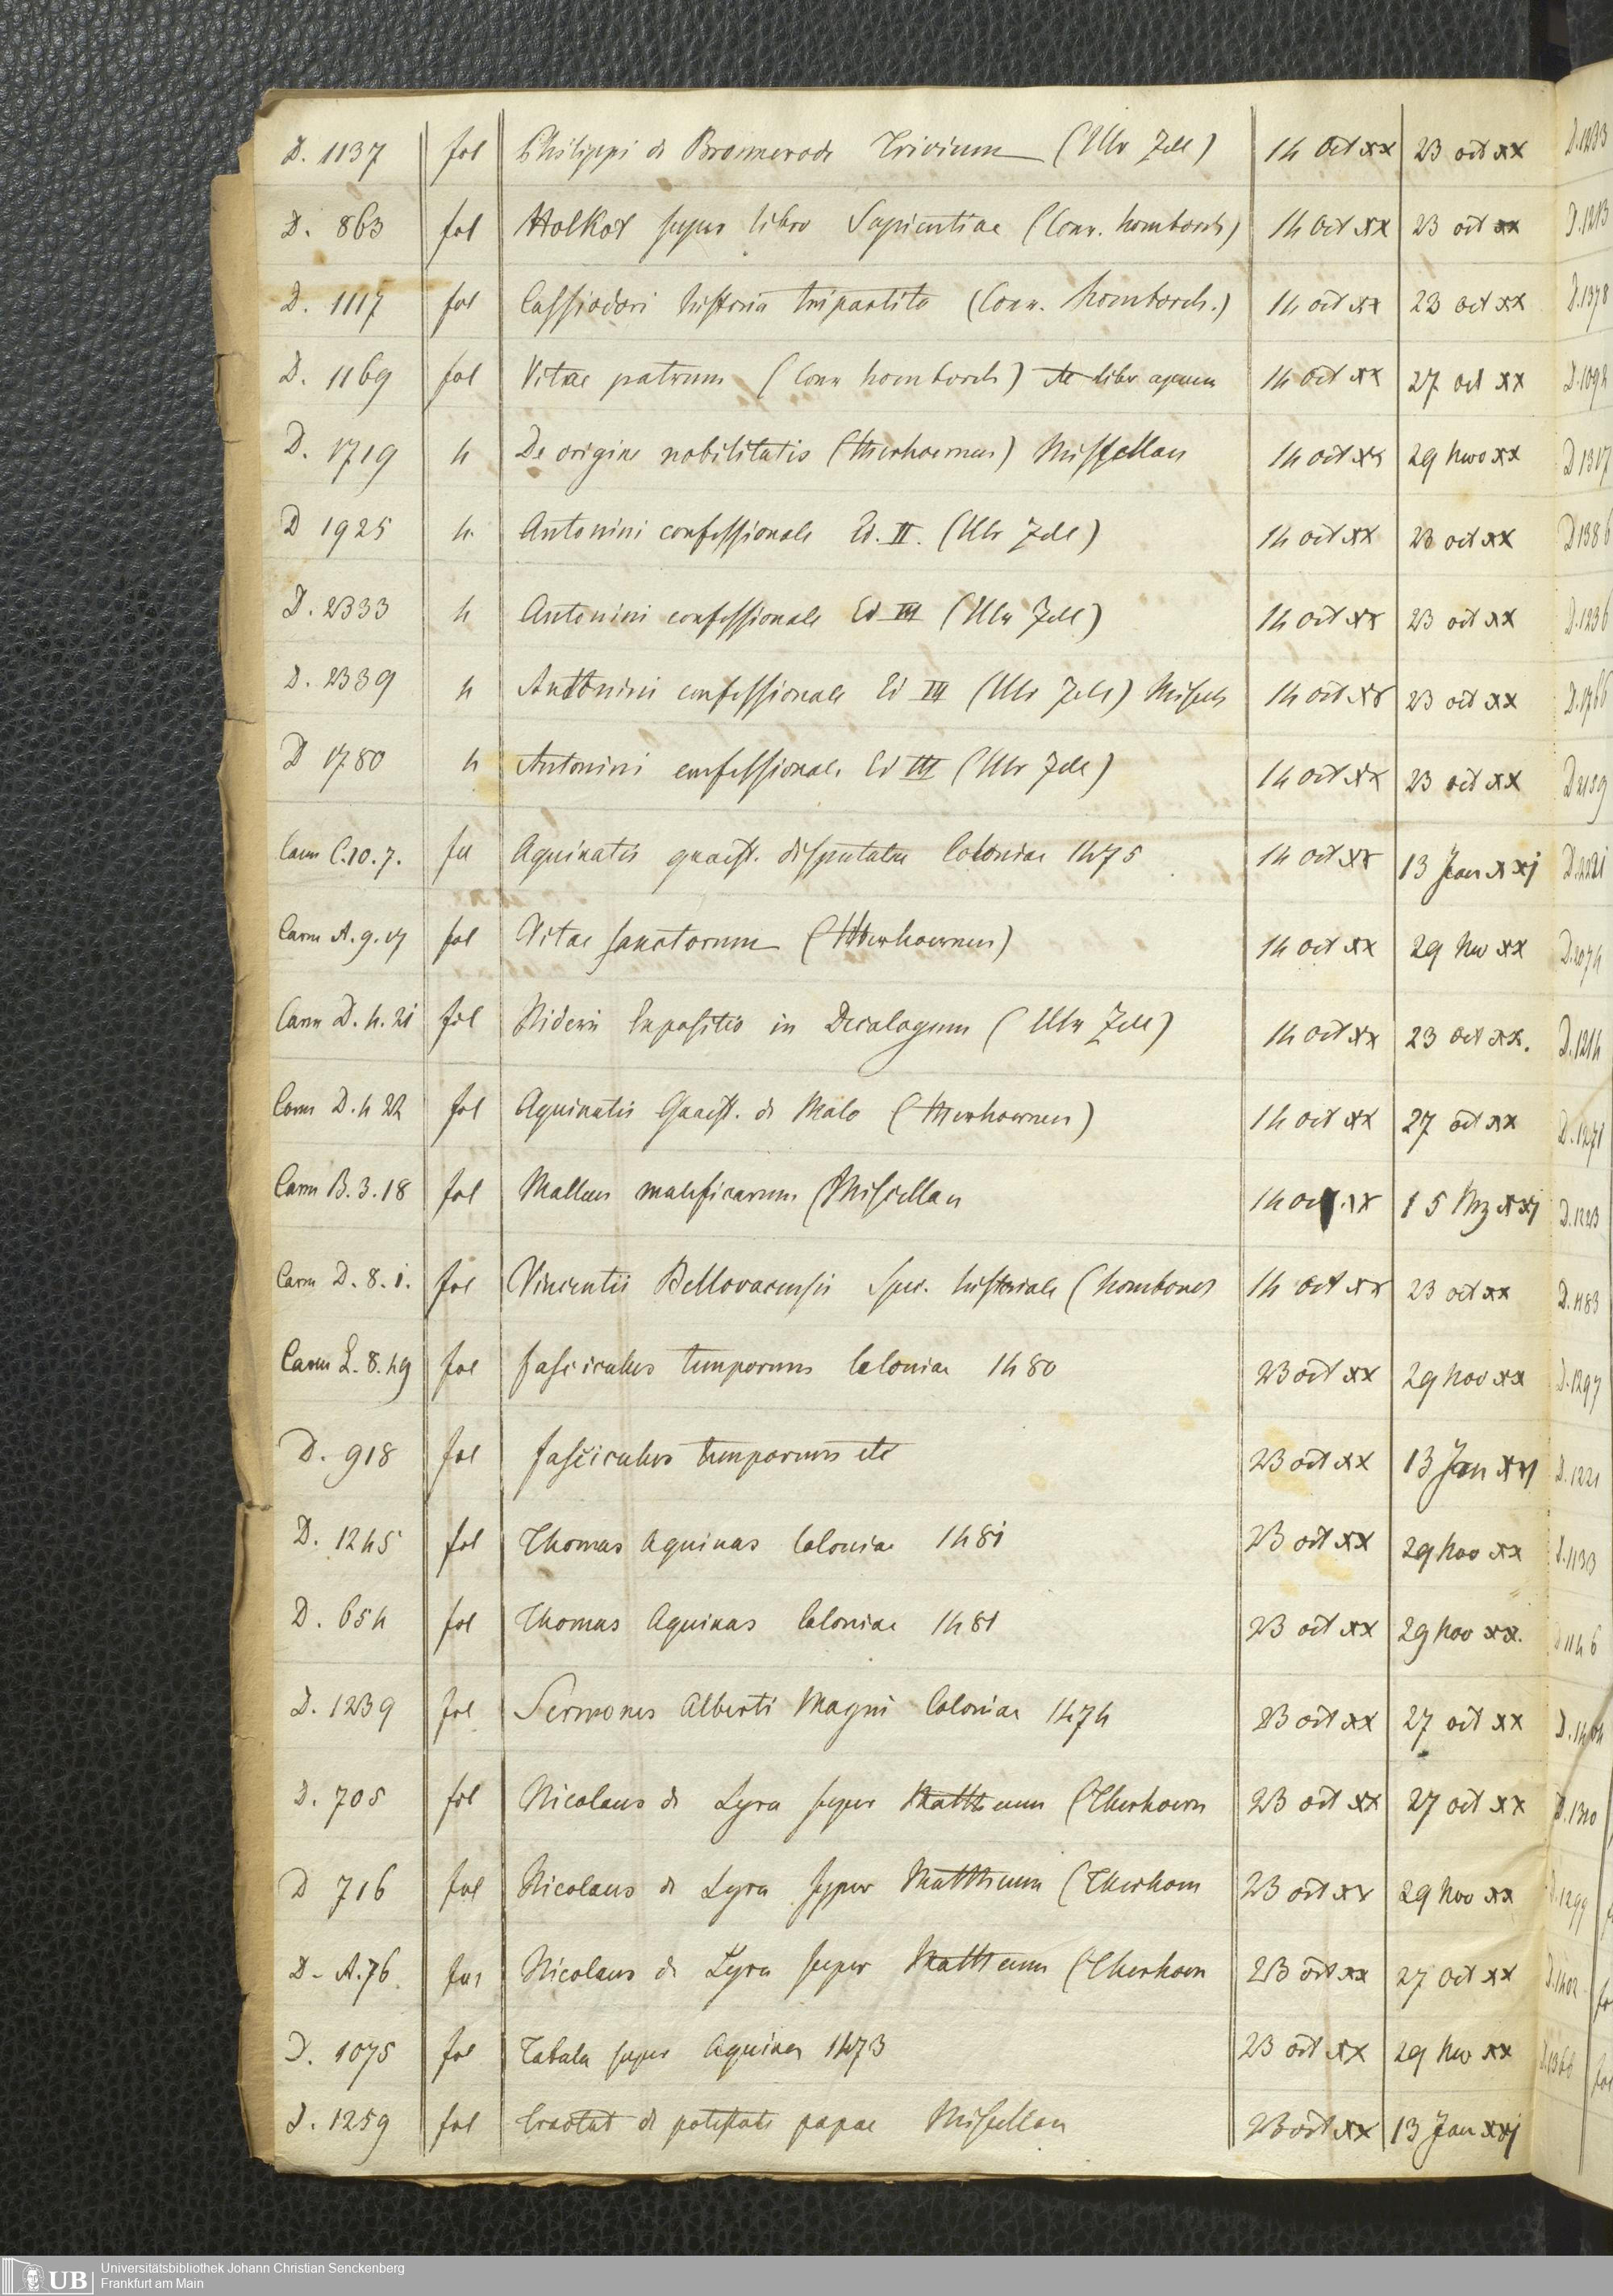 D. 1137 fol Philippi de Bronnerode Trivium (Ulr Zell) 14 Oct xx 23 oct xx
D. 863 fol Holkot super libro Sapientiae (Conr. homborch) 14 Oct xx 23 oct xx
D. 1117 fol Cassiodori historia tripartita (Conr. homborch.) 14 oct xx 23 oct xx
D. 1169 fol Vitae patrum (Conr homborch) 14 oct xx 27 oct xx
D. 1719 4 De origine nobilitatis (therhoernen) Miscellan 14 oct xx 29 Nov xx
D 1925 4. Antonini confessionale Ed. II. (Ulr Zell) 14 oct xx 23 oct xx
D. 2333 4 Antonini confessionale Ed III (Ulr Zell) 14 oct xx 23 oct xx
D. 2339 4 Antonini confessionale Ed III (Ulr Zell) Miscell 14 oct xx 23 oct xx
D 1780 4 Antonini confessionale Ed III (Ulr Zell) 14 oct xx 23 oct xx
Carm C.10.7. fol Aquinatis quaest. disputatae Coloniae 1475 14 oct xx 13 Jan xxj
Carm A.9.17 fol Vitae sanctorum (therhoernen) 14 oct xx 29 Nov xx
Carm D.4.21 fol Nideri Expositio in Decalogum (Ulr Zell) 14 oct xx 23 oct xx.
Carm D.4 22 fol Aquinatis Quaest. de Malo (therhoernen) 14 oct xx 27 oct xx
Carm B.3.18 fol Malleus maleficarum (Miscellan 14 oct xx 15 Mz xxj
Carm D.8.1. fol Vincentii Bellovacensis Spec. historiale (homborch 14 oct xx 23 oct xx
Carm L.8.49 fol fasciculus temporum Coloniae 1480 23 oct xx 29 Nov xx
D. 918 fol fasciculus temporum etc 23 oct xx 13 Jan xxj
D. 1245 fol Thomas Aquinas Coloniae 1481 23 oct xx 29 Nov xx
D. 654 fol Thomas Aquinas Coloniae 1481 23 oct xx 29 Nov xx.
D. 1239 fol Sermones Alberti Magni Coloniae 1474 23 oct xx 27 oct xx
D. 705 fol Nicolaus de Lyra super Mattheum (Therhoern 23 oct xx 27 oct xx
D 716 fol Nicolaus de Lyra super Mattheum (Therhoern 23 oct xx 29 Nov xx
D- A.76 fol Nicolaus de Lyra super Mattheum (Therhoern 23 oct xx 27 oct xx
D. 1075 fol Tabula super Aquinas 1473 23 oct xx 29 Nov xx
D. 1259 fol Tractat de potestate papae Miscellan 23 oct xx 13 Jan xxj
D.1233
D.1213
D.1378
D.1317
D.1386
D.1236
D.1766
D.2221
D.1214
D.1271
D.1223
D.1183
D.1297
D.1221
D.1133
D.1310
D.1299
D.1402
UB Universitätsbibliothek Johann Christian Senckenberg
Frankfurt am Main